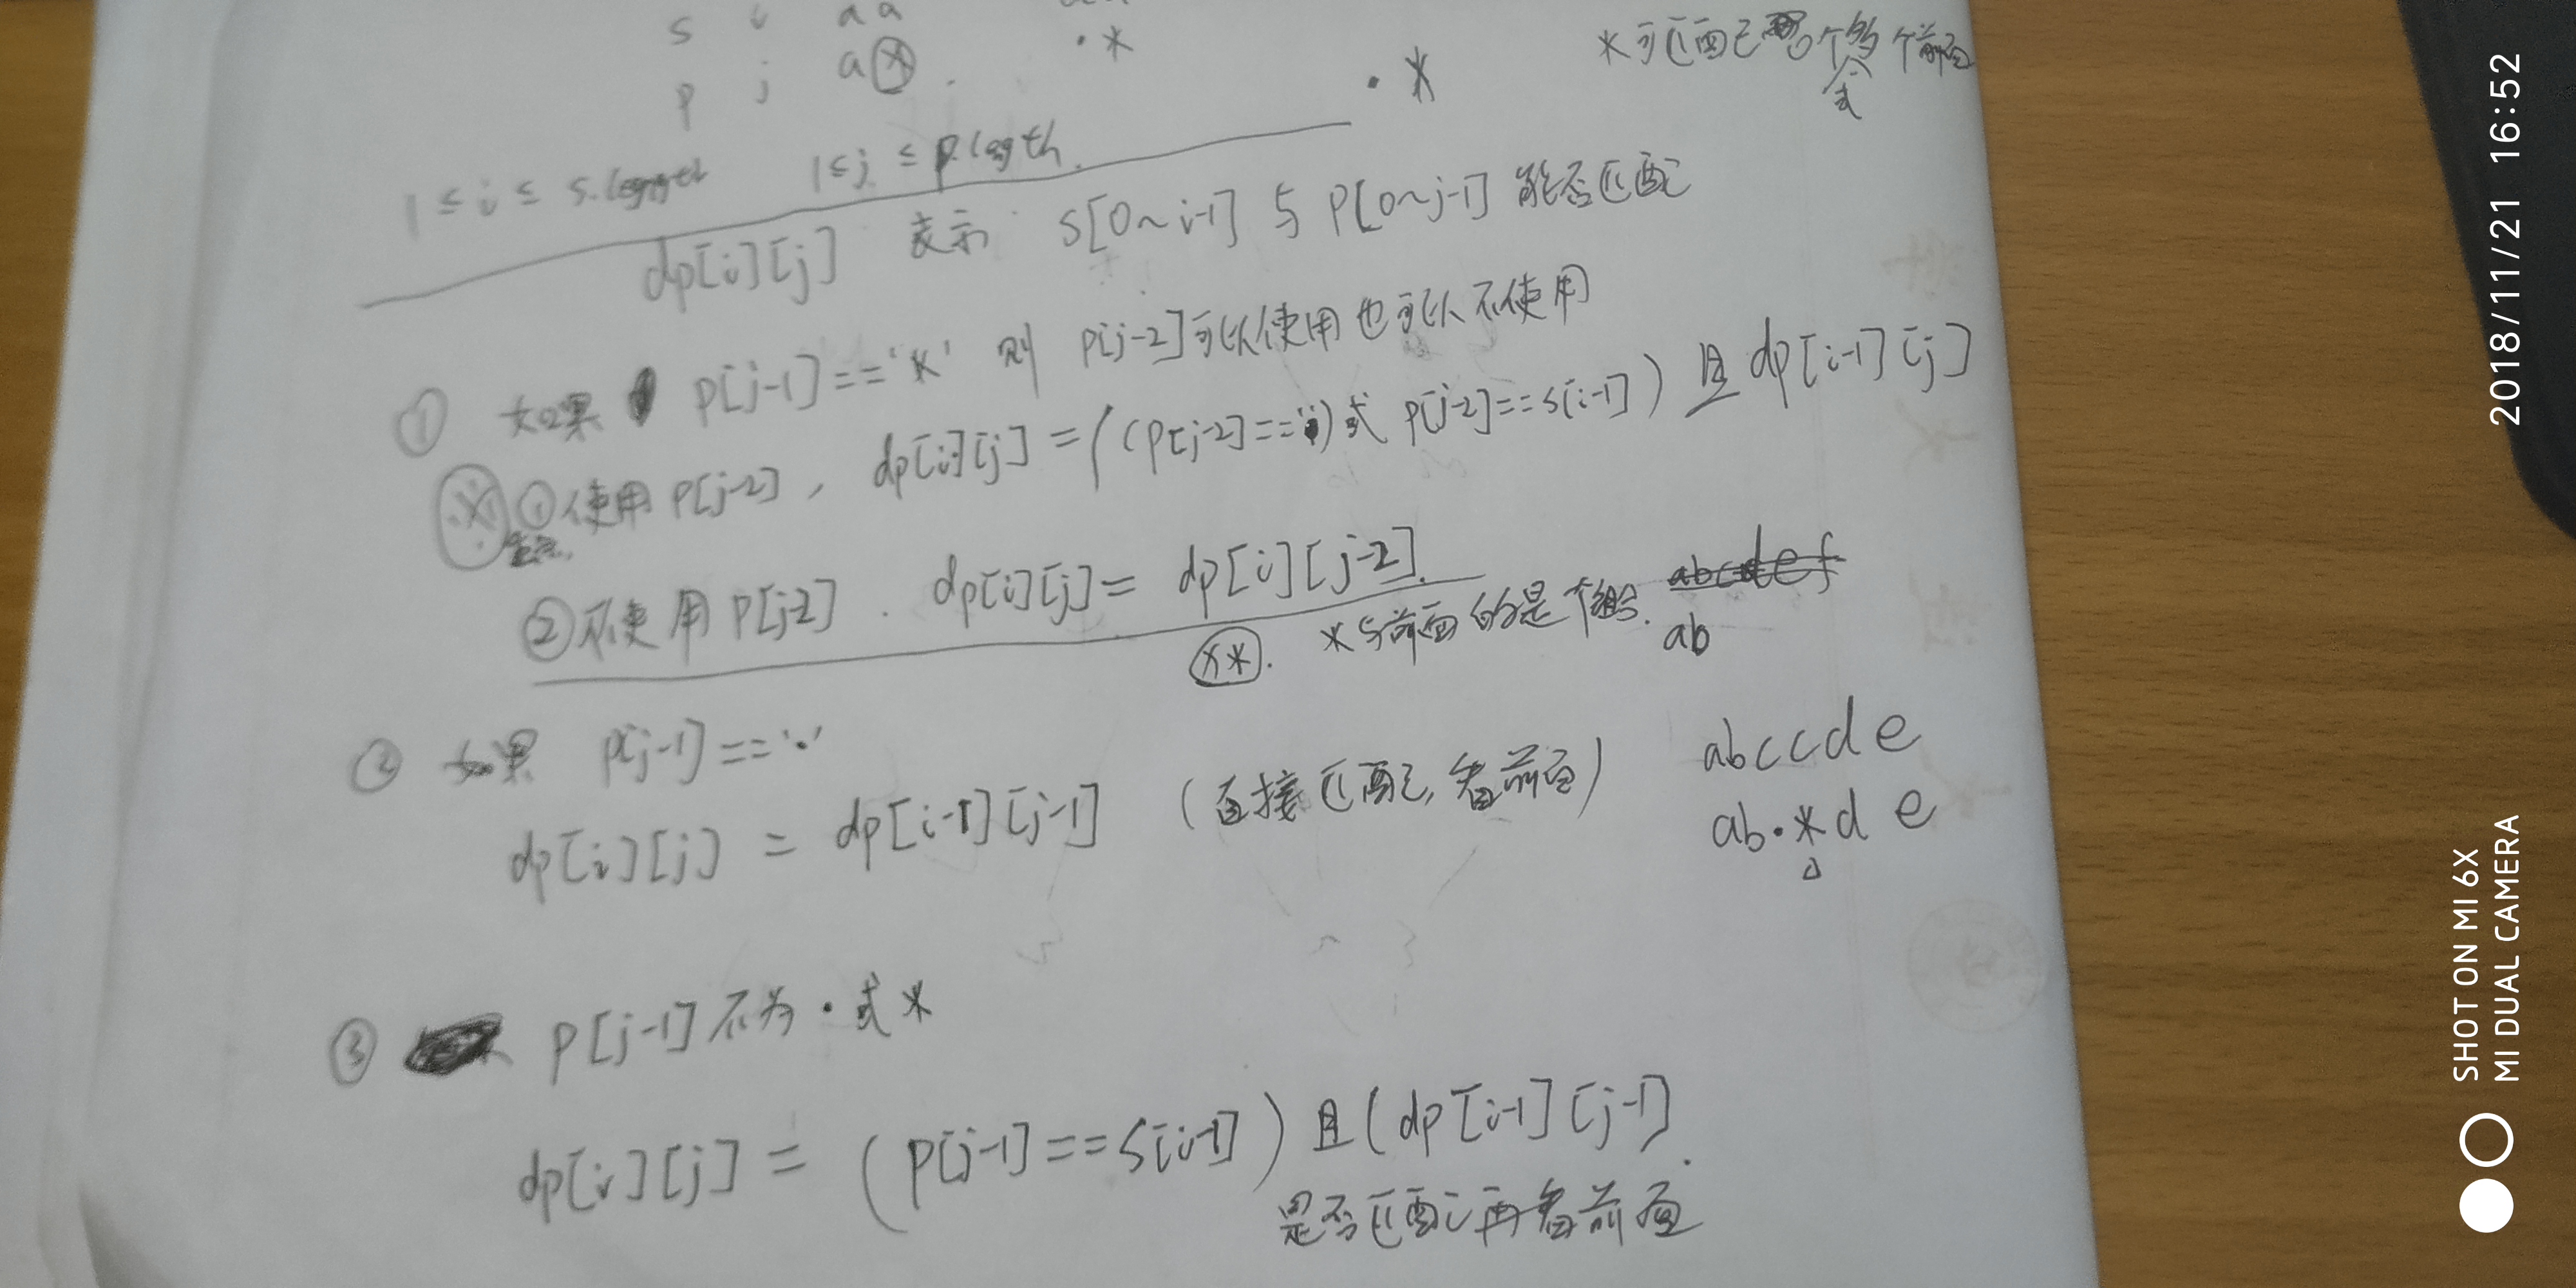 s i aa
p j a* .
.*
.*
*可匹配0个或
1≤i≤s.length 1≤j≤p.length.
dp[i][j] 表示 s[0~i-1] 与 p[0~j-1] 能否匹配
① 如果 p[j-1]=='*' 则 p[j-2]可以使用也可以不使用
①使用p[j-2], dp[i][j]=((p[j-2]=='.')或 p[j-2]==s[i-1]) 且 dp[i-1][j]
②不使用p[j-2]. dp[i][j]= dp[i][j-2].
** . *与前面的是
ab
② 如果 p[j-1]=='.'
dp[i][j] = dp[i-1][j-1] (直接匹配,看前面)
abccde
ab.*de
③ p[j-1]不为.或*
dp[i][j] = (p[j-1]==s[i-1])且(dp[i-1][j-1]
是否匹配再看前面.
SHOT ON MI 6X
MI DUAL CAMERA
2018/11/21 16:52